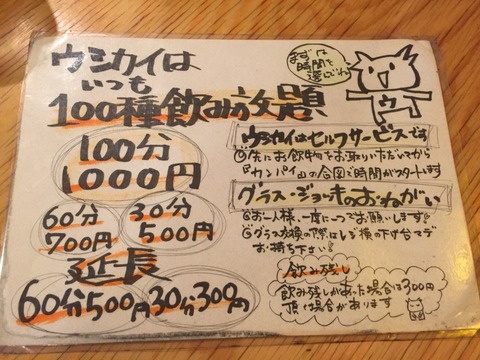 ウシカイは
いつも
100種飲み放題
まずは
時間を
選んでね
ウ
100分
1000円
60分
700円
30分
500円
延長
60分500円
30分300円
ウシカイはセルフサービスです
先にお飲物をお取りいただいてから
『カンパイ』の合図で時間がスタートします
グラス・ジョッキのおねがい
お一人様、一度に一つでお願いします!
グラス交換の際はレジ横の下げ台マデ
お持ち下さい!
飲み残し
飲み残しがあった場合は300円
頂く場合があります